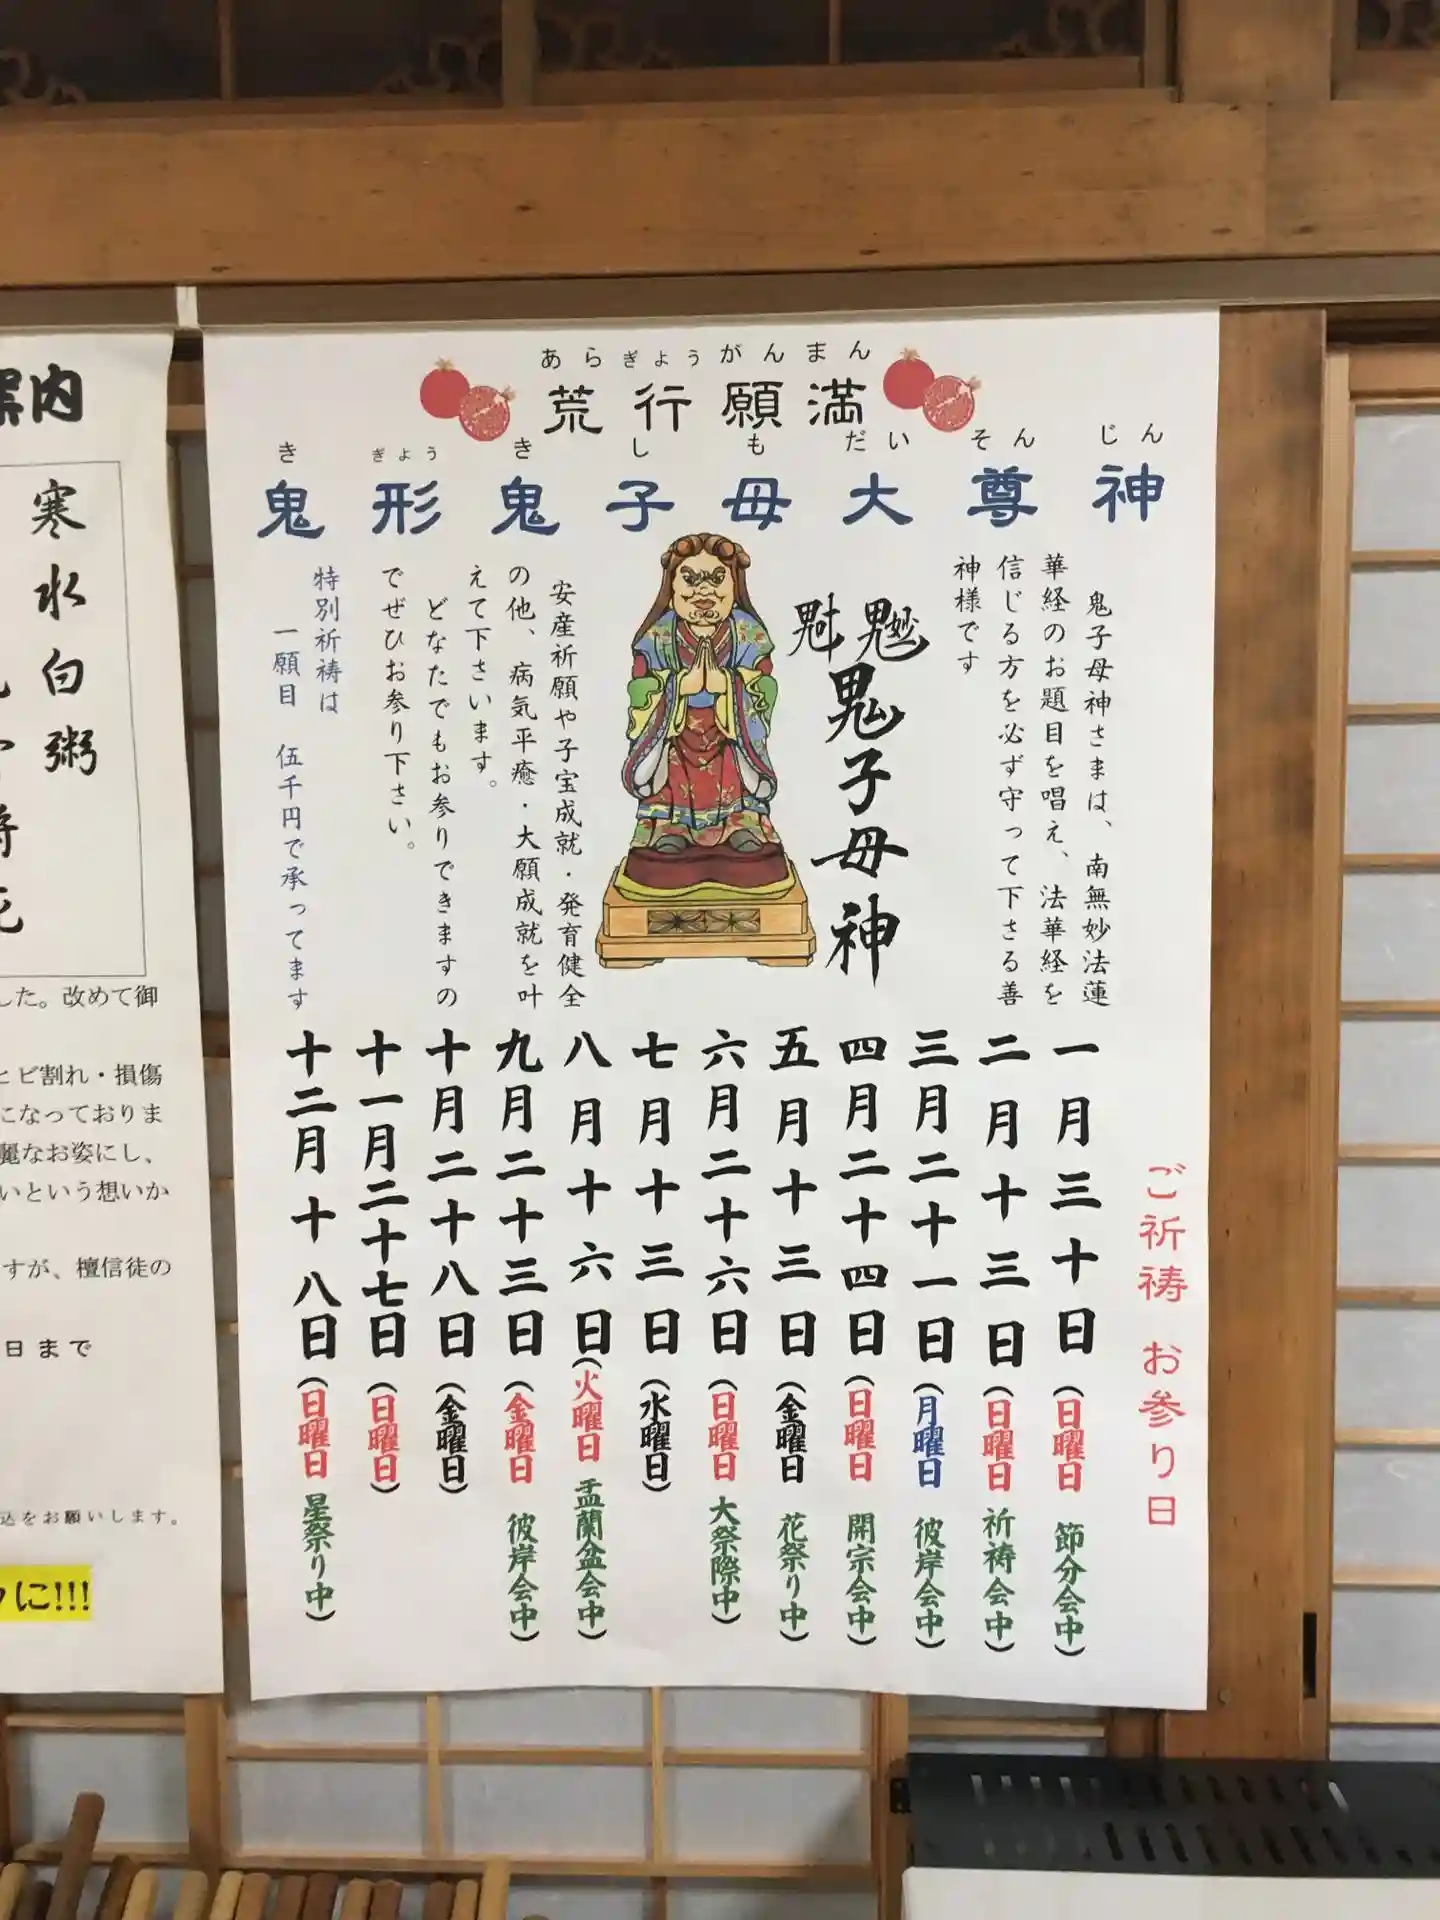 あらぎょうがんまん
荒行願満
きぎょうきしもだいそんじん
鬼形鬼子母大尊神
鬼子母神さまは、南無妙法蓮
華経のお題目を唱え、法華経を
信じる方を必ず守って下さる善
神様です
鬼子母神
安産祈願や子宝成就・発育健全
の他、病気平癒・大願成就を叶
えて下さいます。
どなたでもお参りできますの
でぜひお参り下さい。
特別祈祷は
一願目 伍千円で承ってます
ご祈祷 お参り日
一月三十日(日曜日 節分会中)
二月十三日(日曜日 祈祷会中)
三月二十一日(月曜日 彼岸会中)
四月二十四日(日曜日 開宗会中)
五月十三日(金曜日 花祭り中)
六月二十六日(日曜日 大祭際中)
七月十三日(水曜日)
八月十六日(火曜日 盂蘭盆会中)
九月二十三日(金曜日 彼岸会中)
十月二十八日(金曜日)
十一月二十七日(日曜日)
十二月十八日(日曜日 星祭り中)
案内
寒水白粥
した。改めて御
ヒビ割れ・損傷
になっておりま
麗なお姿にし、
いという想いか
すが、檀信徒の
日まで
込をお願いします。
に!!!